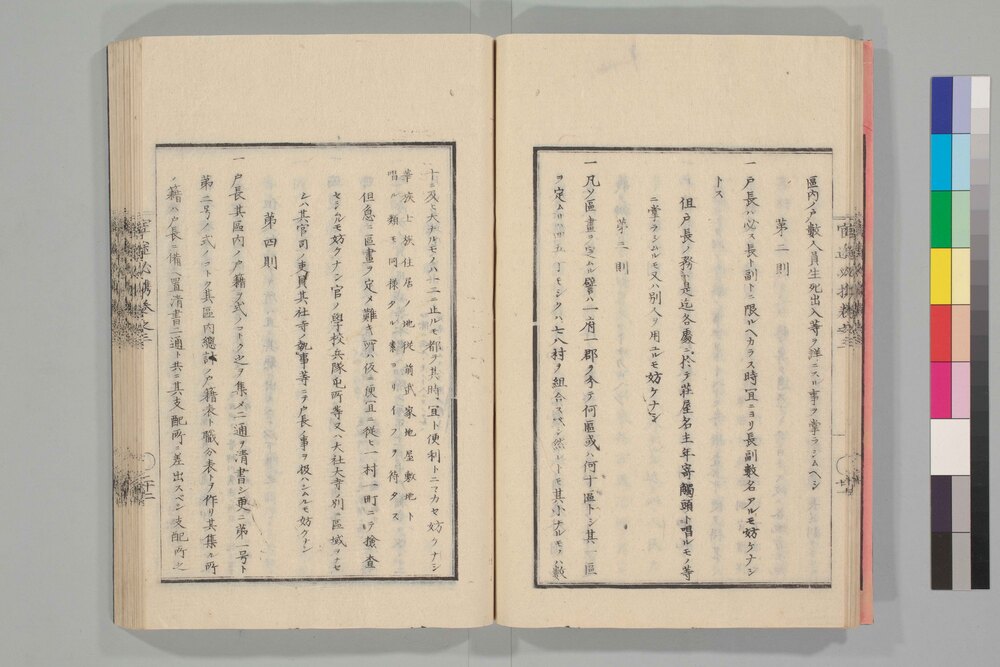 區内ノ戸數人員生死出入等ヲ詳ニスル事ヲ掌ラシムヘシ
第二則
一 戸長ハ必ス長ト副トニ限ルヘカラス時宜ニヨリ長副數名アルモ妨ケナシ
トス
但戸長ノ務ハ是迄各處ニ於テ荘屋名主年寄觸頭ト唱ルモノ等
ニ掌ラシムルモ又ハ別人ヲ用ユルモ妨ケナシ
第三則
一 凡ソ區畫ヲ定ムル譬ハ一府一郡ヲ分テ何區或ハ何十區トシ其一區
ヲ定ムルハ四五丁モシクハ七八村ヲ組合スヘシ然レトモ其小ナルモノハ數
十ニ及ヒ大ナルモノハ一二ニ止ルモ都テ其時ノ宜ト便利トニマカセ妨ケナシ
華族士族住居ノ地從前武家地屋敷地ト
唱ル類モ同様タル素ヨリイフヲ待タス
但急ニ區畫ヲ定メ難キ所ハ仮ニ便宜ニ従ヒ一村一町ニテ撿査
セシムルモ妨ケナシ官ノ學校兵隊屯所等又ハ大社大寺ノ別ニ區域ヲナセ
シハ其官司ノ吏員其社寺ノ執事等ニテ戸長ノ事ヲ扱ハシムルモ妨ケナシ
第四則
一 戸長其區内ノ戸籍ヲ式ノコトク之ヲ集メ二通ヲ清書シ更ニ第一号ト
第二号ノ式ノコトク其區内總計ノ戸籍表ト職分表トヲ作リ其集ル所
ノ籍ハ戸長ニ備ヘ置清書二通ト共ニ其支配所ニ差出スヘシ支配所之